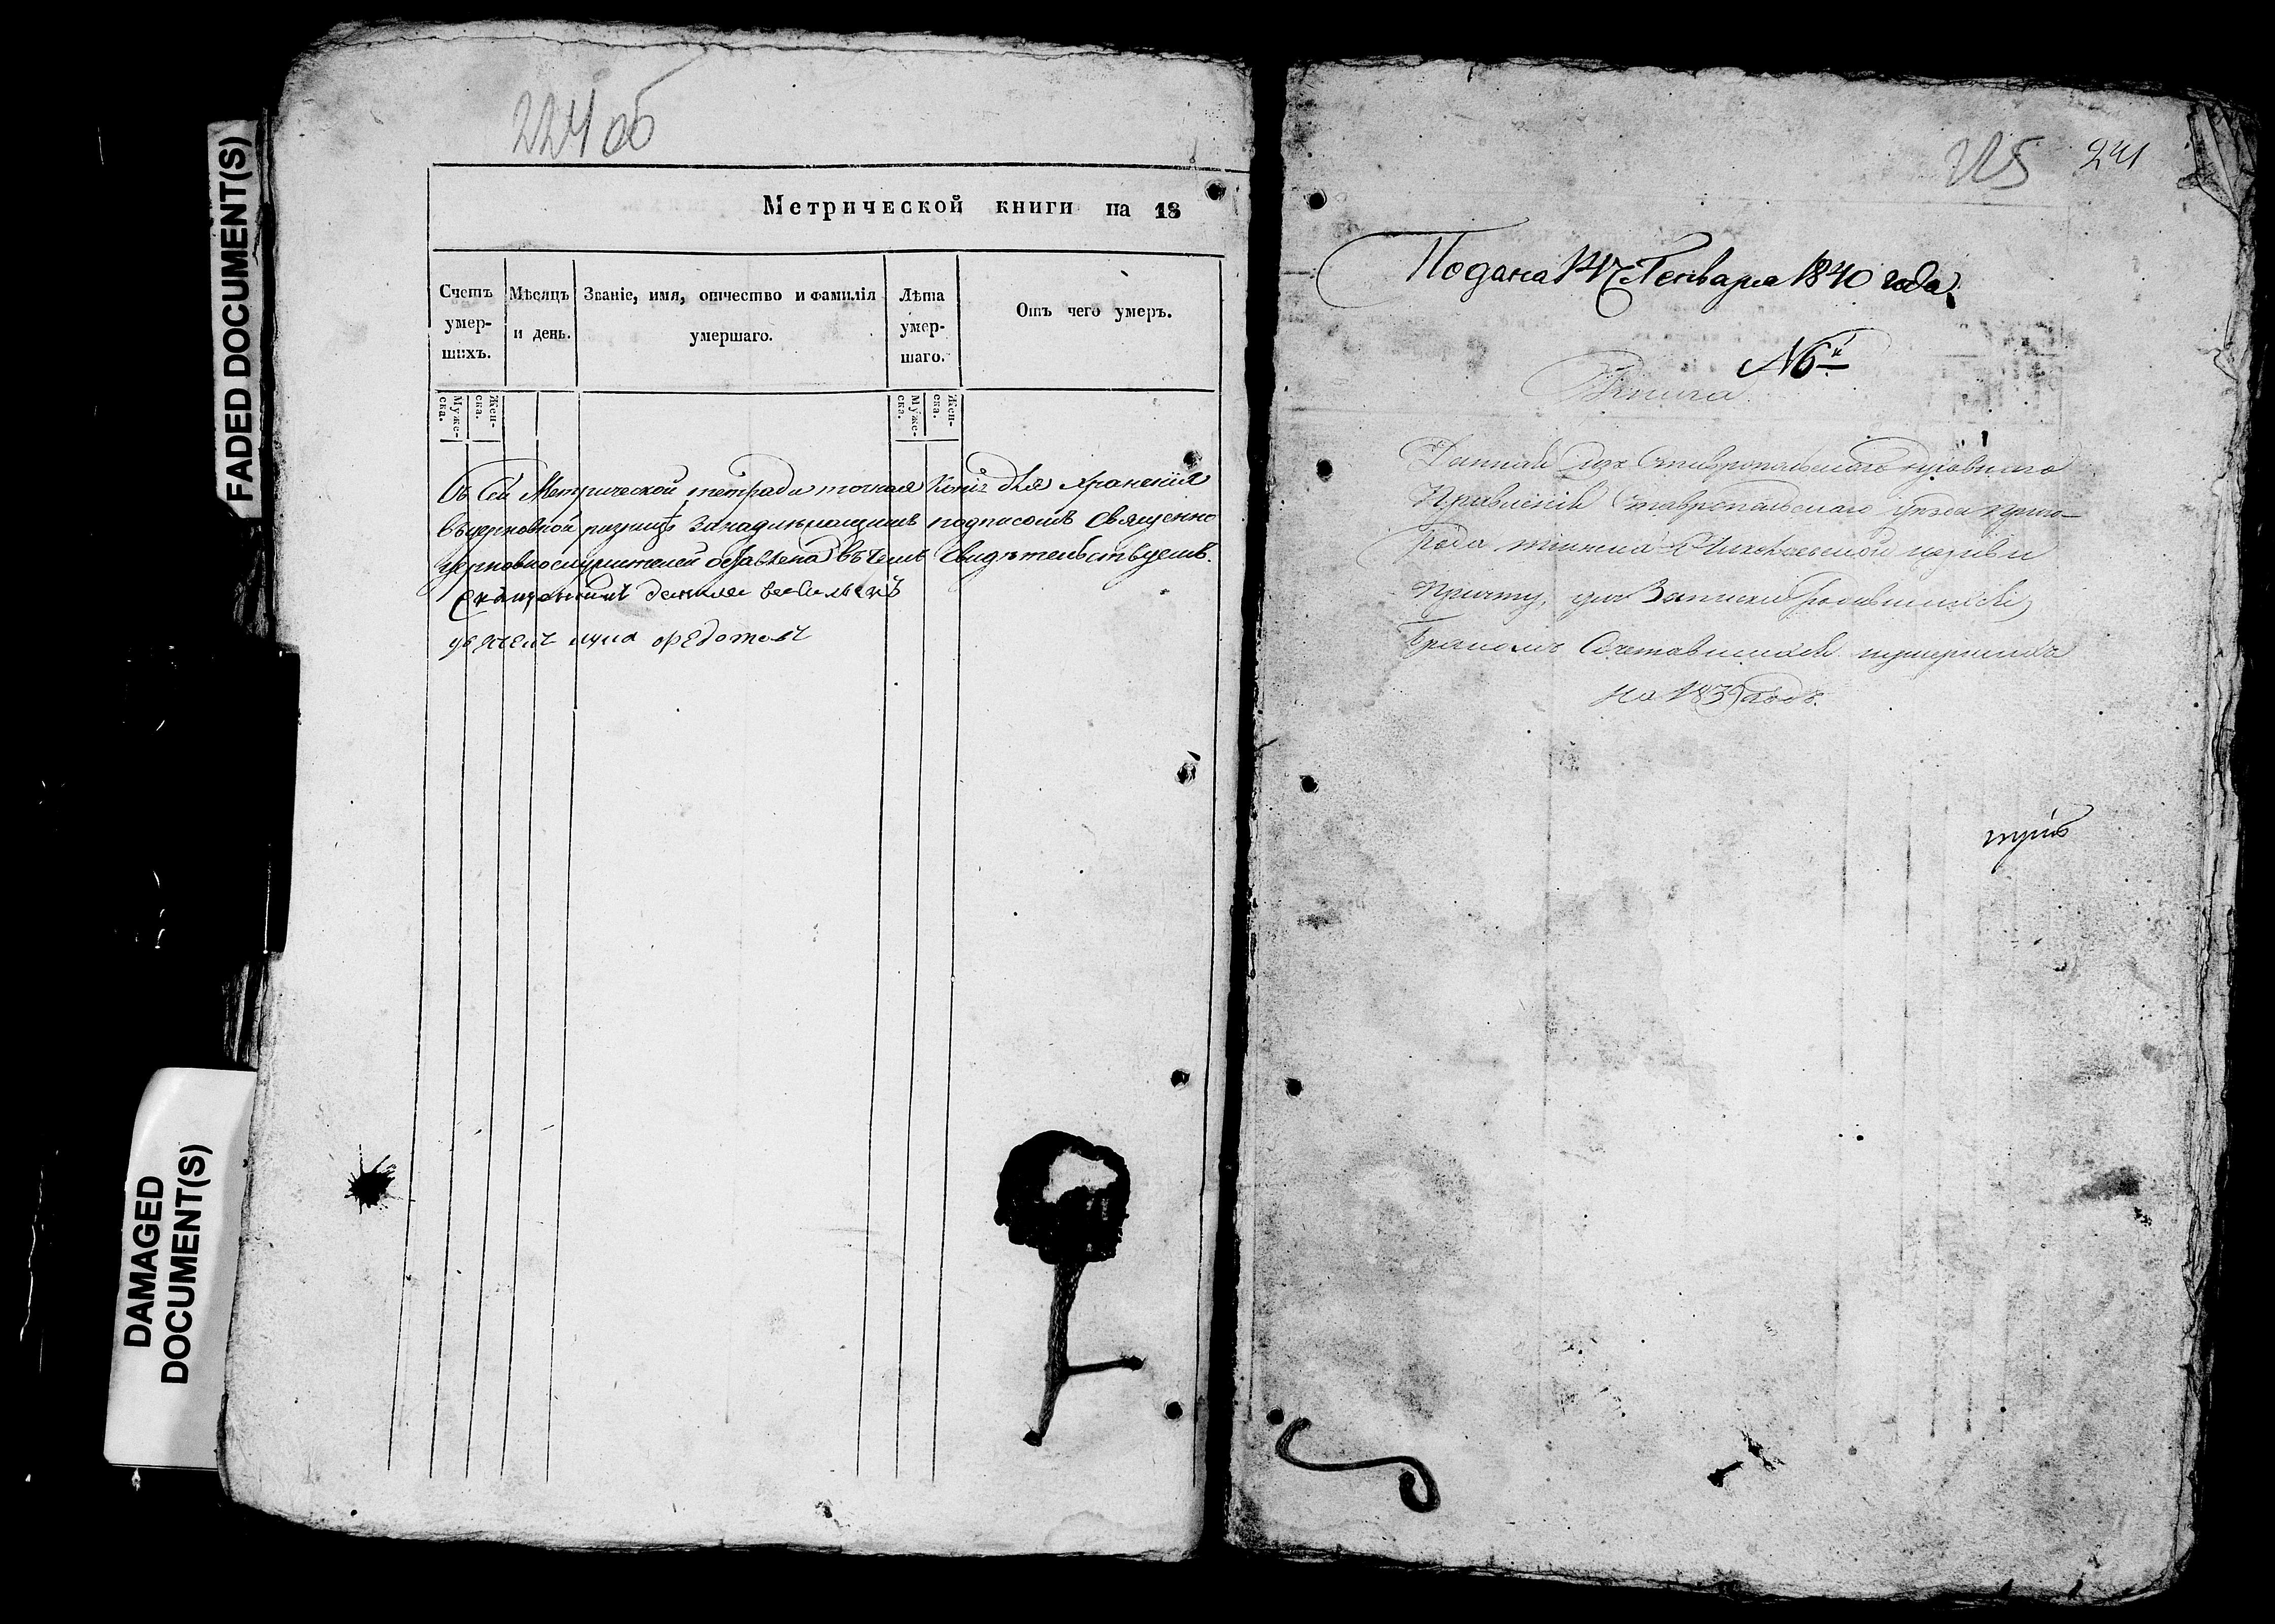 FADED DOCUMENT(S)
DAMAGED
DOCUMENT(S)
224 об
Метрической книги на 18
Счетъ умер-шихъ.
Мѣсяцъ и день.
Званіе, имя, отчество и фамилія умершаго.
Лѣта умер-шаго.
Отъ чего умеръ.
Муже-ска.
Жен-ска.
Муже-ска.
Жен-ска.
Съ сей Метрической тетради точная Копія для Хранения
въ церковной ризницѣ за надлежащимъ подписомъ Священно
церковнослужителей оставлена въ чемъ Свидѣтельствуемъ.
Священникъ Василь
дьячекъ Федотовъ
225 241
Подана Генваря 1840 года.
№ 6й
Книга
Данная изъ Ставропольскаго духовнаго
Правленія Ставропольскаго уезда
церкви
Причту, для Записки родившихся,
Бракомъ Сочетавшихся и умершихъ
на 1839 годъ.